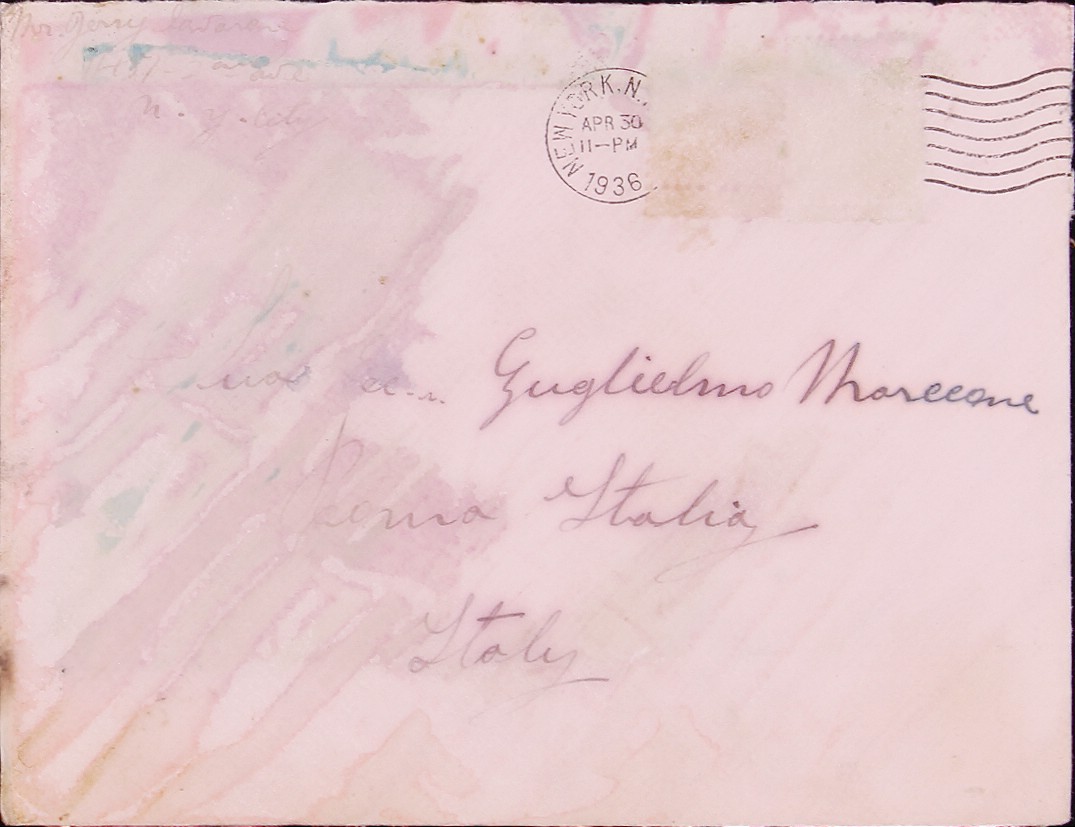 Mr. Jerry
N. Y. City
NEW YORK. N.
APR 30
11—PM
1936
Guglielmo Marccone
Roma Italia
Italy